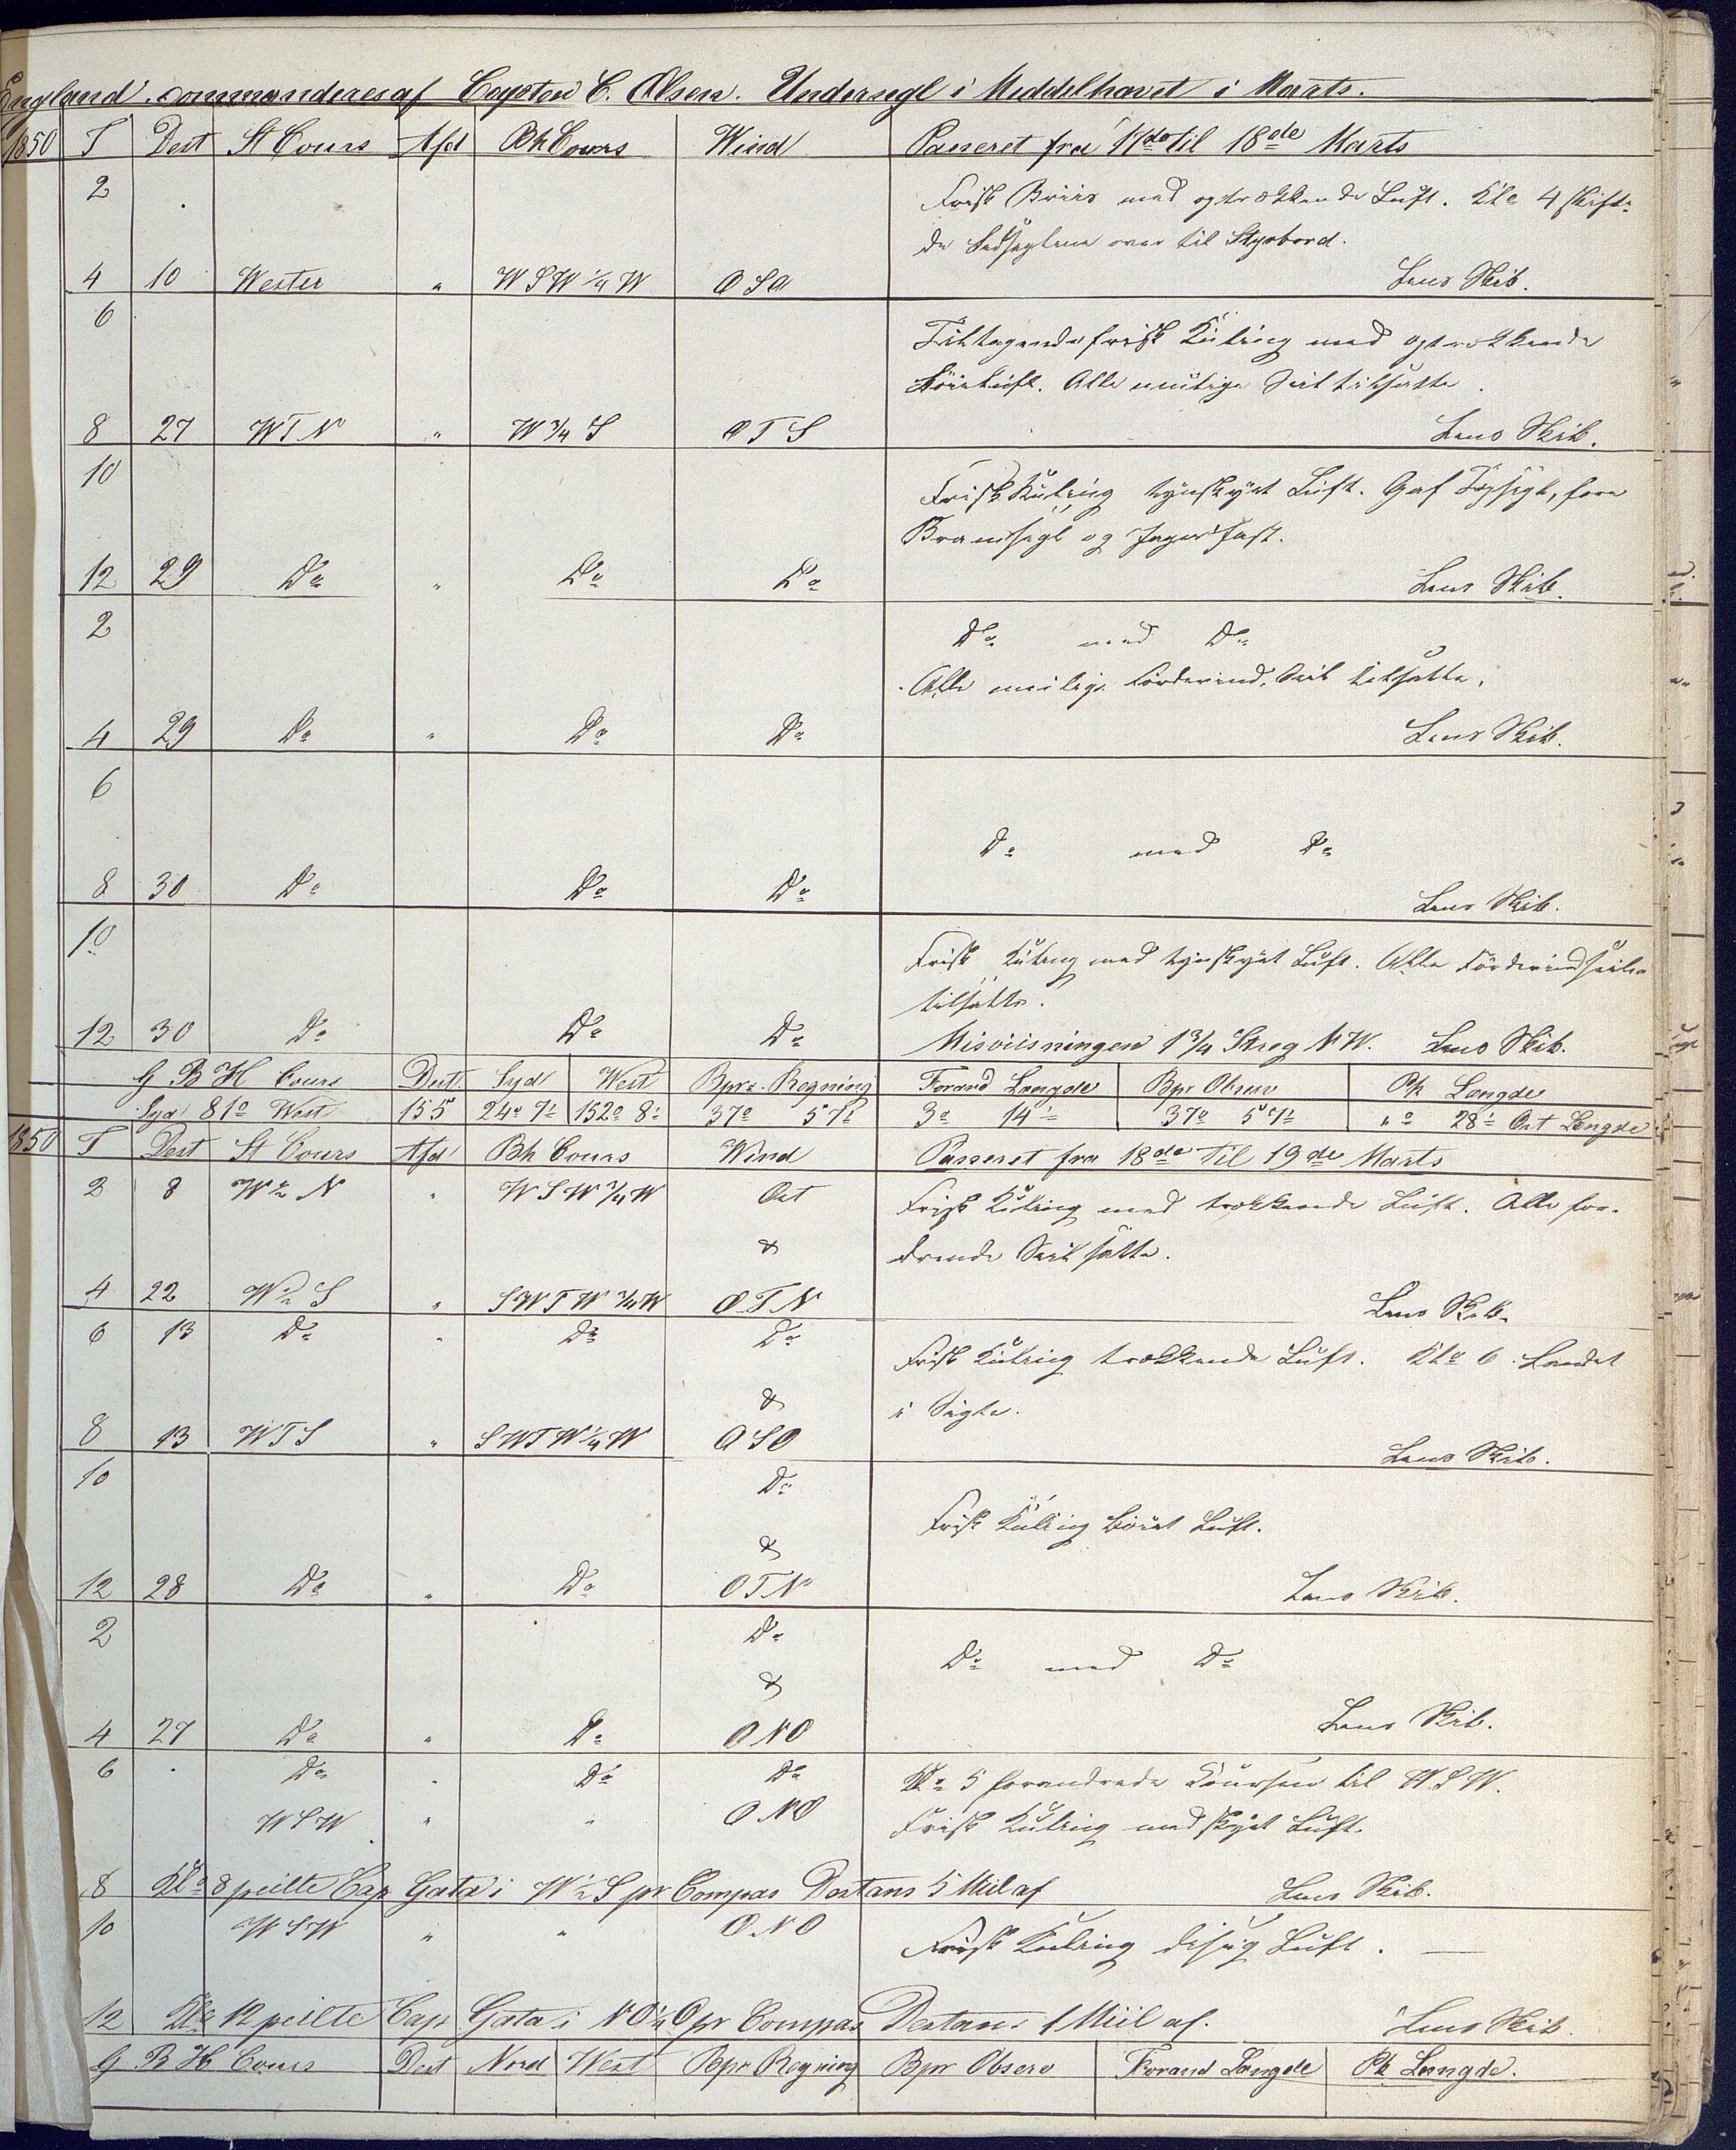 England. commanderes af Capten C. Olsen. Undersegl i Meddelhavet i Marts.
1850 T Dest St Cours Afd Bh Cours Wind Passeret fra 17de til 18de Marts
2 Frisk Briis med optrækkende Luft. Kl: 4 skift-
de Ledseglene over til Styrbord.
4 10 Wester " WSW 1/4 W OSO Lens Skib.
6 Tiltagende frisk Kuling med optrækkende
Luft. Alle mulige Seil tilsatte.
8 27 WTN " W 3/4 S OTS Lens Skib.
10 Frisk Kuling tynskyet Luft. Gaf Topsegl, fore
Bramsegl og Jager fast.
12 29 Do " Do Do Lens Skib.
2 Do med Do
Alle mulige Fordevind Seil tilsatte.
4 29 Do " Do Do Lens Skib.
6 Do med Do
8 30 Do Do Do Lens Skib.
10 Frisk Kuling med tynskyet Luft. Alle Fordevindseiler
tilsatte.
12 30 Do Do Do Misviisningen 1 3/4 Streg NW. Lens Skib.
G B H Cours Dest. Syd West Bpr. Regning Forand Længde Bpr Observ Ph Længde
Syd 81° West 155 24° 7' 152° 8' 37° 57' 3° 14' 37° 57' "° 28' Ost Længde
1850 T Dest St Cours Afd Bh Cours Wind Passeret fra 18de til 19de Marts
2 8 W 1/2 N " WSW 1/4 W Ost Frisk Kuling med trækkende Luft. Alle for-
& drende Seil satte.
4 22 W 1/2 S " SWTW 3/4 W OTN Lens Skib.
6 13 Do " Do Do Frisk Kuling trækkende Luft. Kl: 6 Landet
& i Sigte.
8 13 WTS " SWTW 1/4 W OSO Lens Skib.
10 Do Frisk Kuling Luft.
&
12 28 Do " Do OTN Lens Skib.
2 Do Do med Do
&
4 27 Do " Do ONO Lens Skib.
6 " Do " Do Do Kl: 5 forandrede Coursen til WSW.
WSW " " ONO Frisk Kuling med skyet Luft.
8 Kl: 8 peilte Cap Gata i W 1/2 S pr Compas Destans 5 Miil af Lens Skib.
10 WSW " " ONO Frisk Kuling disig Luft.
12 Kl: 12 peilte Cap Gata i NO 1/4 O pr Compas Destans 1 Miil af. Lens Skib.
G B H Cours Dest Nord West Bpr Regning Bpr Observ Forand Længde Ph Længde.